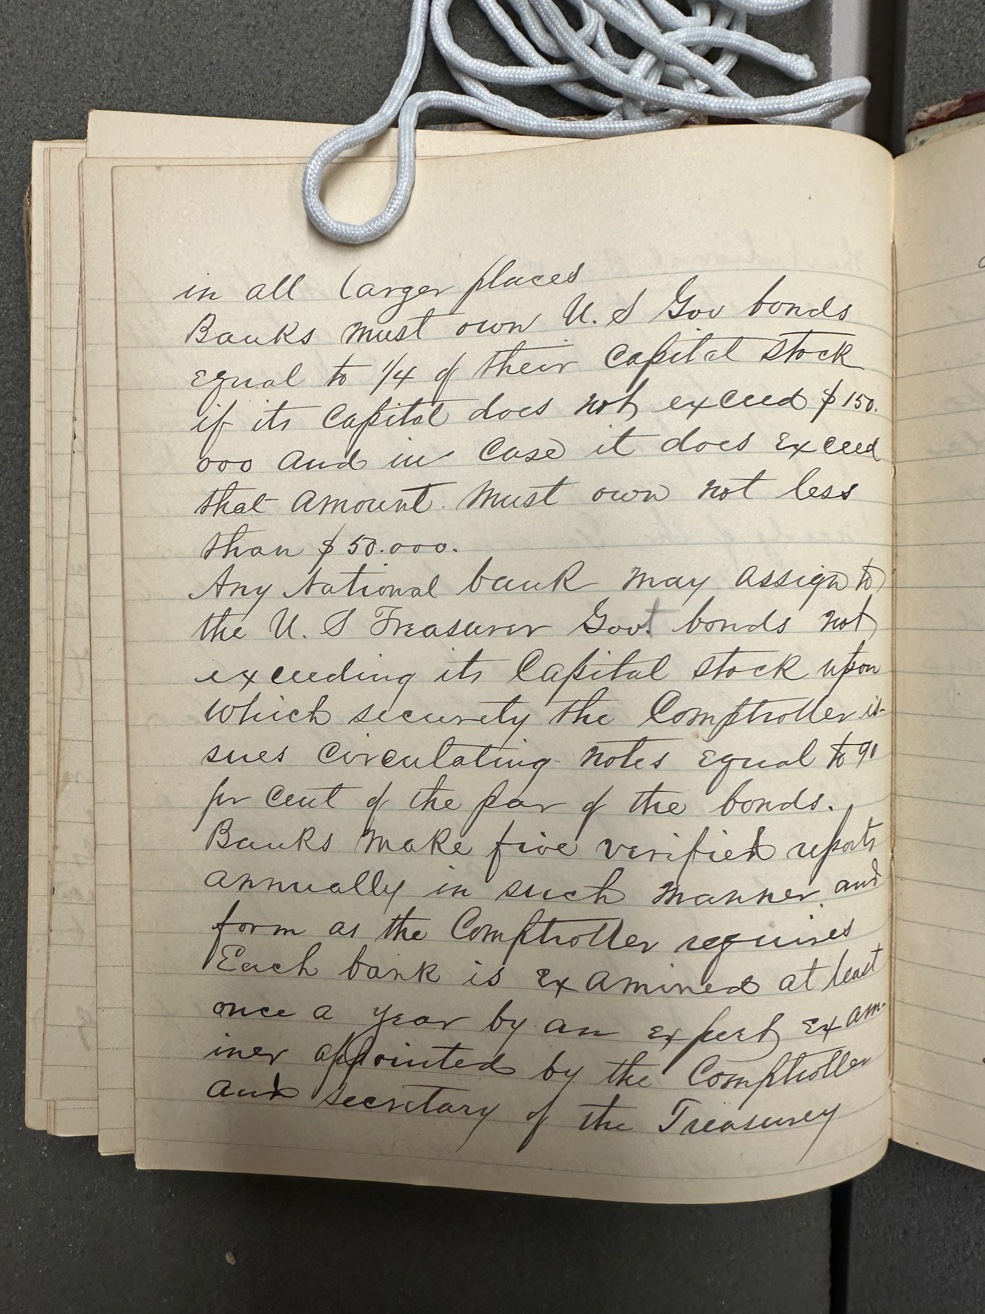 in all larger places
Banks must own U. S Gov bonds
equal to 1/4 of their capital stock
if its capital does not exceed $150.
000 and in case it does exceed
that amount. must own not less
than $50.000.
Any National bank may assign to
the U. S Treasurer Govt bonds not
exceeding its Capital stock upon
which security the Comptroller is-
sues circulating notes equal to 90
per cent of the par of the bonds.
Banks make five verified reports
annually in such manner and
form as the Comptroller requires
Each bank is examined at least
once a year by an expert exam-
iner appointed by the Comptroller
and secretary of the Treasurey